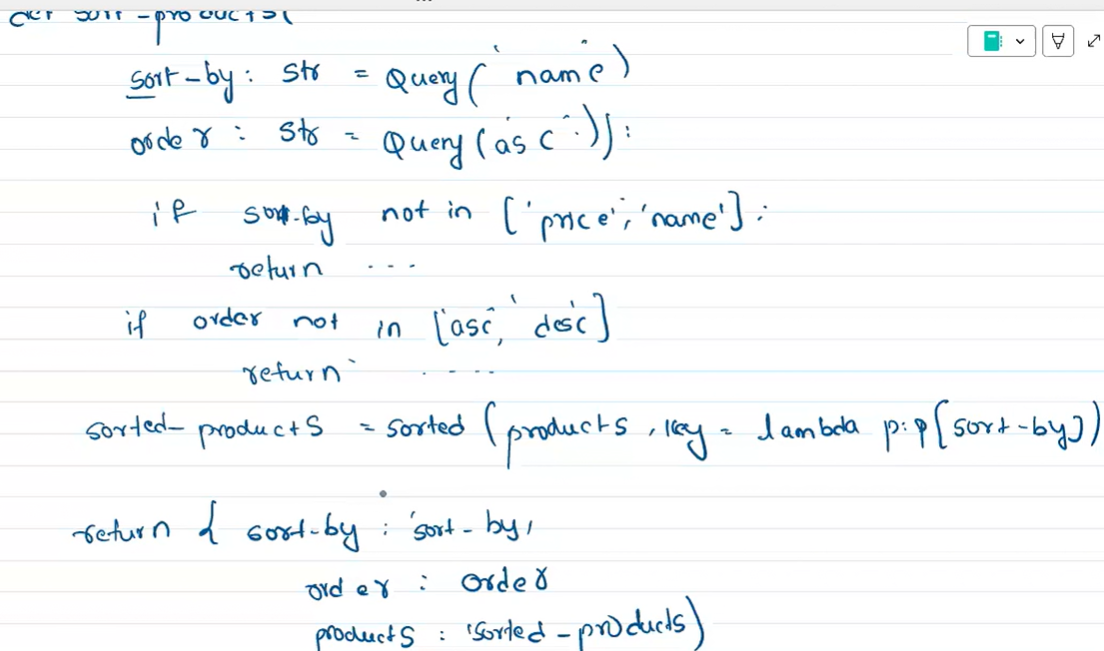 def sort-products(
sort-by: str = Query('name')
order: str = Query('asc')):
if sort-by not in ['price', 'name']:
return ...
if order not in ['asc', 'desc']
return ....
sorted-products = sorted (products, key = lambda p:p[sort-by])
return { sort-by : 'sort-by,
order : order
products : 'sorted-products)